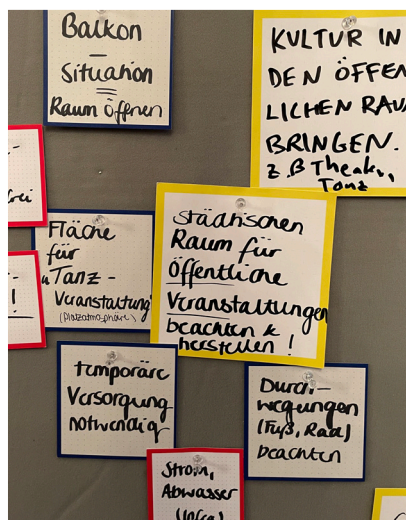 Balkon
–
Situation
Raum öffnen
KULTUR IN
DEN ÖFFEN
LICHEN RAU
BRINGEN.
z.B Theater,
Tanz
Fläche
für
Tanz-
Veranstaltung
(Plazatmosphäre)
städtischen
Raum für
Öffentliche
Veranstaltungen
beachten &
herstellen !
!
temporäre
Versorgung
notwendig
Durch-
wegungen
(Fuß, Rad)
beachten
Strom,
Abwasser
(Infra)